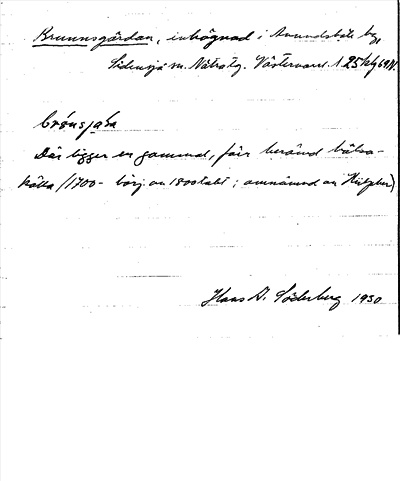 Brunnsgärdan, inhägnad i Avundsbyle by,
Sidensjö sn. Nätra tg. Västernorrl. l.
brónsjaɷa
Där ligger en gammal, förr berömd hälso-
källa (1700- börj. av 1800talet; omnämnd av Hülphers)
Hans A. Söderberg 1930